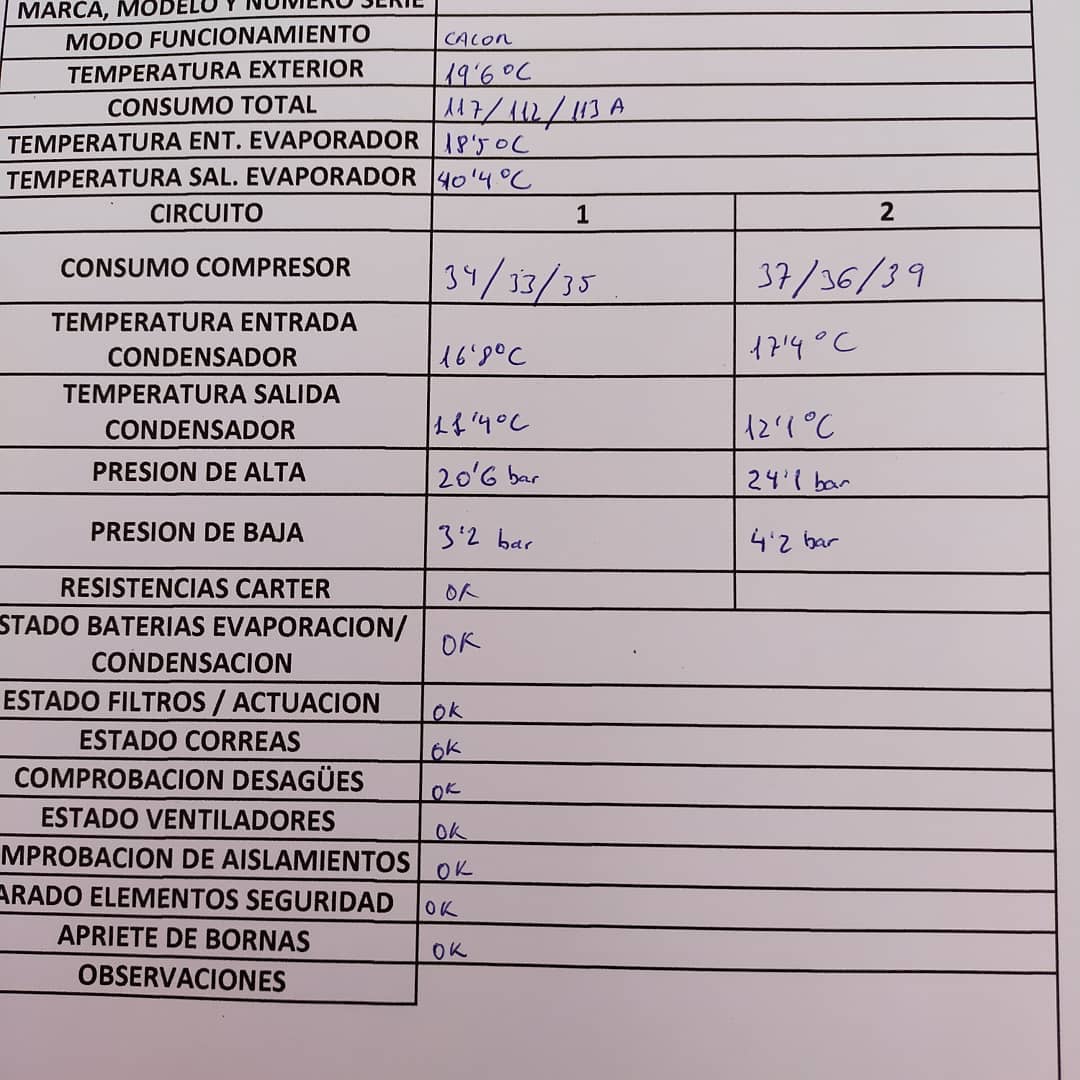 MARCA, MODELO Y NUMERO SERIE
MODO FUNCIONAMIENTO CALOR
TEMPERATURA EXTERIOR 19'6ºC
CONSUMO TOTAL 117/112/113 A
TEMPERATURA ENT. EVAPORADOR 18'5ºC
TEMPERATURA SAL. EVAPORADOR 40'4ºC
CIRCUITO 1 2
CONSUMO COMPRESOR 34/33/35 37/36/39
TEMPERATURA ENTRADA
CONDENSADOR 16'8ºC 17'4ºC
TEMPERATURA SALIDA
CONDENSADOR 11'4ºC 12'1ºC
PRESION DE ALTA 20'6 bar 24'1 bar
PRESION DE BAJA 3'2 bar 4'2 bar
RESISTENCIAS CARTER OK
STADO BATERIAS EVAPORACION/
CONDENSACION OK
ESTADO FILTROS / ACTUACION OK
ESTADO CORREAS OK
COMPROBACION DESAGÜES OK
ESTADO VENTILADORES OK
MPROBACION DE AISLAMIENTOS OK
ARADO ELEMENTOS SEGURIDAD OK
APRIETE DE BORNAS OK
OBSERVACIONES